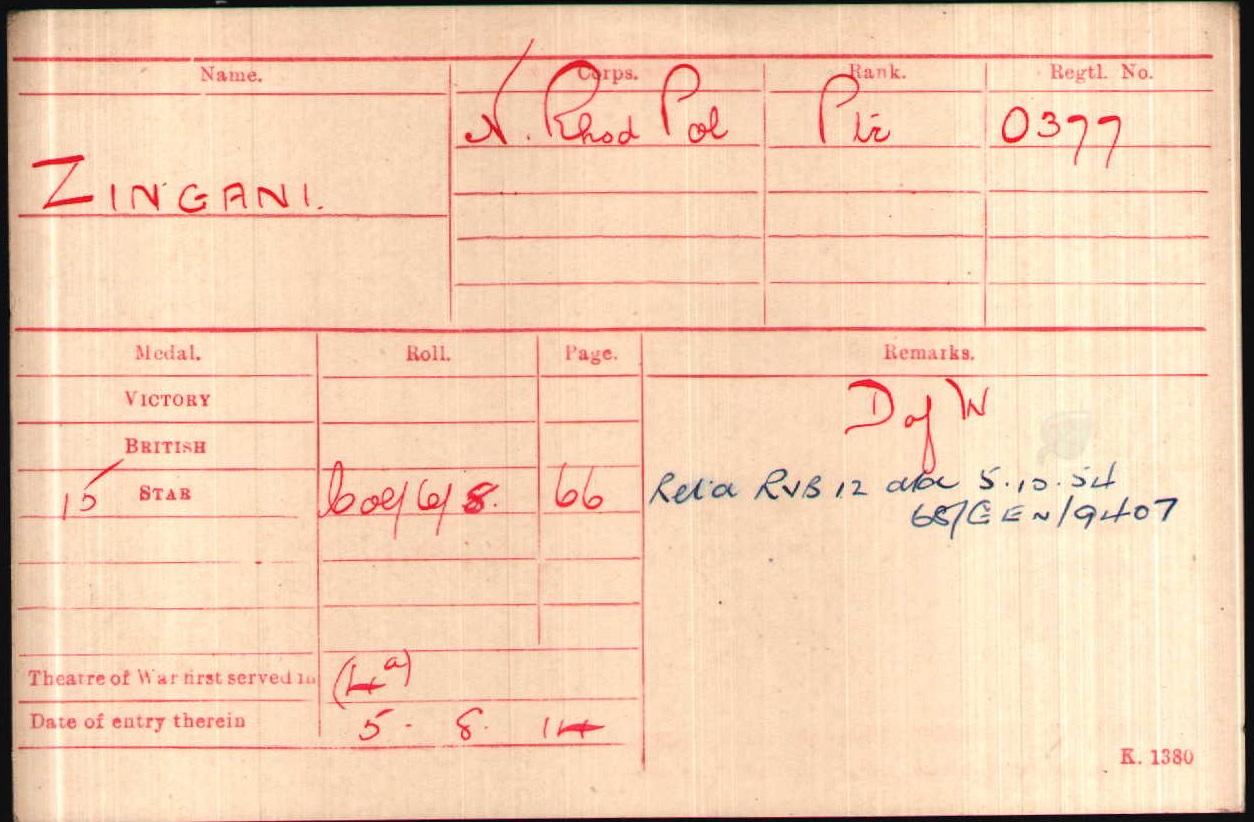 Name. Corps. Rank. Regtl. No.
ZINGANI. N. Rhod Pol Pte 0377
Medal. Roll. Page. Remarks.
VICTORY D of W
BRITISH
15 STAR Col/6/8. 66 Ret'd RVB 12 5.10.54
68/GEN/9407
Theatre of War first served in (4a)
Date of entry therein 5. 8. 14
K. 1380